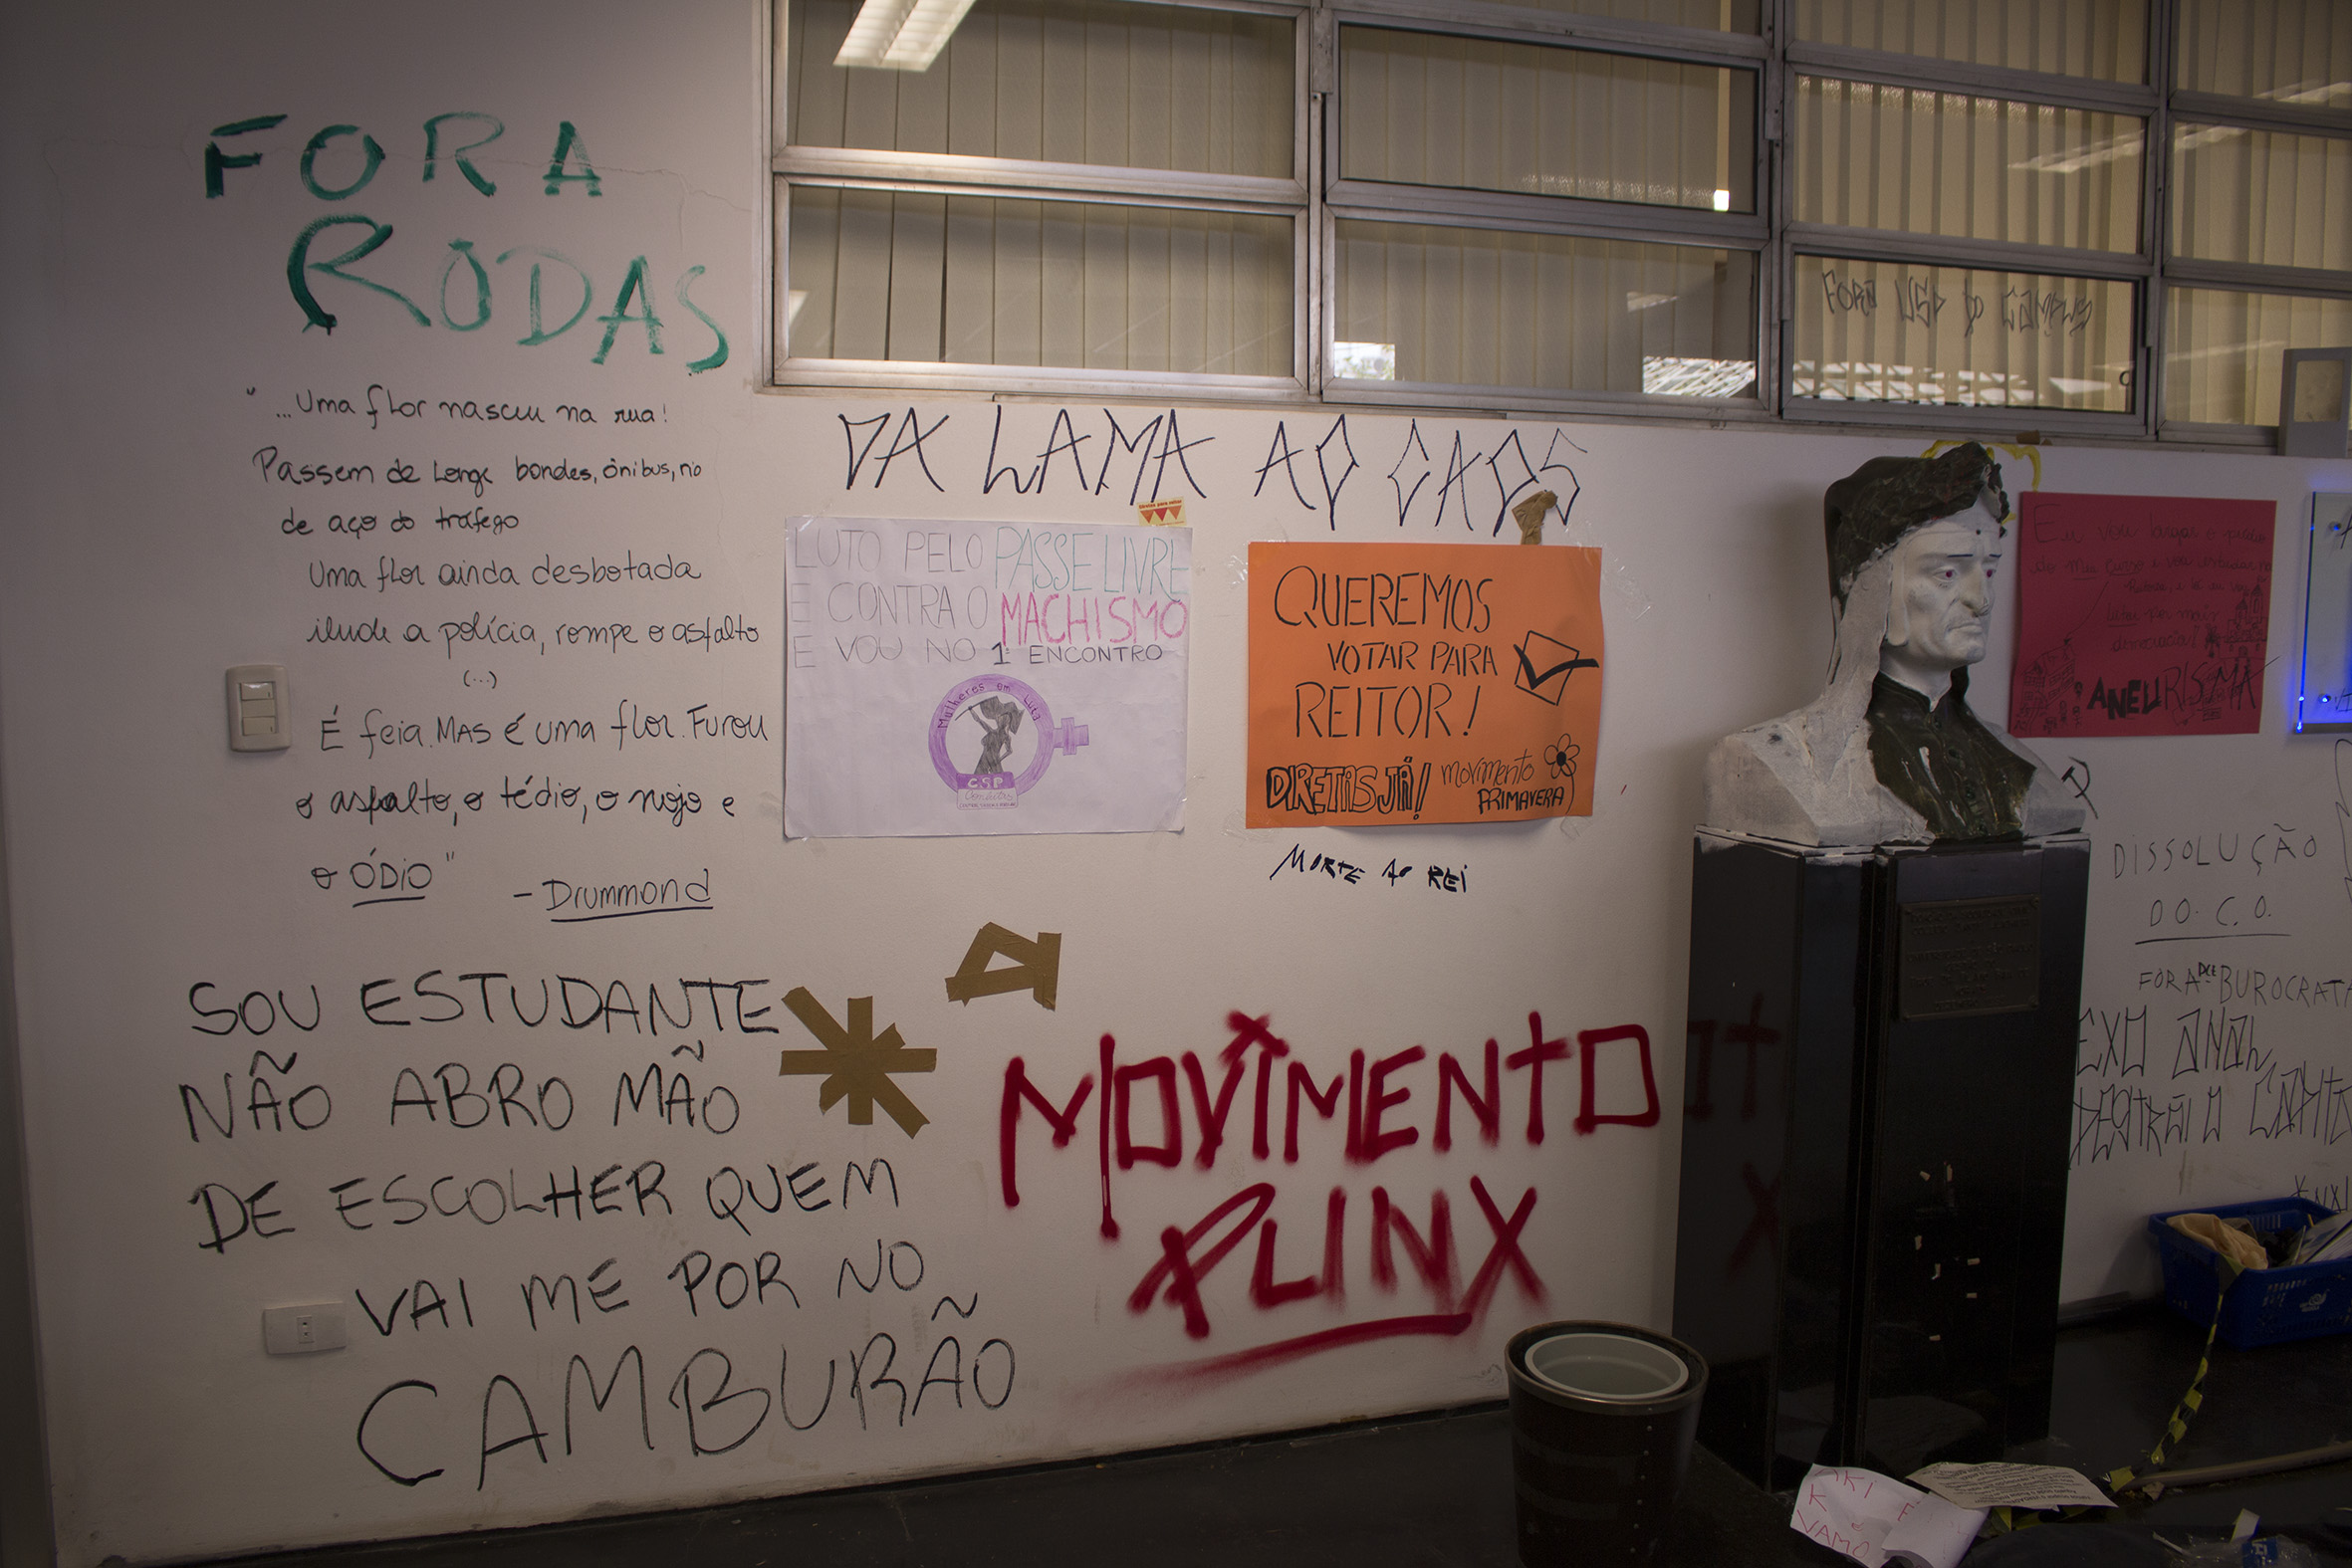 FORA
RODAS
"...Uma flor nasceu na rua!
Passem de longe bondes, ônibus, rio
de aço do tráfego
Uma flor ainda desbotada
ilude a polícia, rompe o asfalto
(...)
É feia. MAS é uma flor. Furou
o asfalto, o tédio, o nojo e
o ÓDIO"
- Drummond
SOU ESTUDANTE
NÃO ABRO MÃO
DE ESCOLHER QUEM
VAI ME POR NO
CAMBURÃO
DA LAMA AO CAOS
LUTO PELO PASSE LIVRE
E CONTRA O MACHISMO
E VOU NO 1º ENCONTRO
Mulheres em Luta
CSP
Conlutas
QUEREMOS
VOTAR PARA
REITOR!
DIRETAS JÁ!
movimento
PRIMAVERA
MORTE AO REI
A
MOVIMENTO
PUNX
FORA USP DO CAMPUS
Eu vou largar o
do meu curso e vou
lutar por mais
democracia!
ANEURISMA
DISSOLUÇÃO
DO. C. O.
FORA DCE BUROCRATA
EXO ANAL
DESTRÓI O CAPITA
KI
K
VAMO